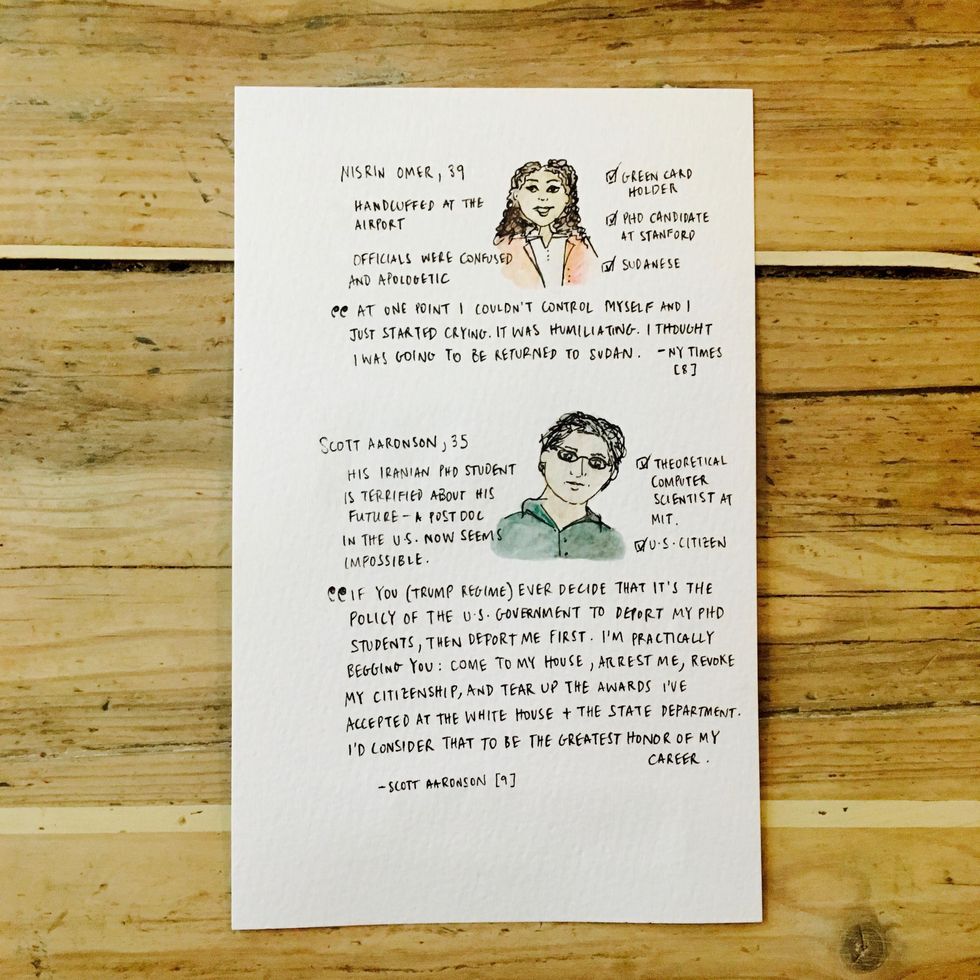 NISRIN OMER, 39
HANDCUFFED AT THE
AIRPORT
OFFICIALS WERE CONFUSED
AND APOLOGETIC
☑ GREEN CARD
HOLDER
☑ PHD CANDIDATE
AT STANFORD
☑ SUDANESE
“ AT ONE POINT I COULDN'T CONTROL MYSELF AND I
JUST STARTED CRYING. IT WAS HUMILIATING. I THOUGHT
I WAS GOING TO BE RETURNED TO SUDAN. – NY TIMES
[8]
SCOTT AARONSON, 35
HIS IRANIAN PHD STUDENT
IS TERRIFIED ABOUT HIS
FUTURE – A POSTDOC
IN THE U.S. NOW SEEMS
IMPOSSIBLE.
☑ THEORETICAL
COMPUTER
SCIENTIST AT
MIT.
☑ U.S. CITIZEN
“ IF YOU (TRUMP REGIME) EVER DECIDE THAT IT'S THE
POLICY OF THE U.S. GOVERNMENT TO DEPORT MY PHD
STUDENTS, THEN DEPORT ME FIRST. I'M PRACTICALLY
BEGGING YOU: COME TO MY HOUSE, ARREST ME, REVOKE
MY CITIZENSHIP, AND TEAR UP THE AWARDS I'VE
ACCEPTED AT THE WHITE HOUSE + THE STATE DEPARTMENT.
I'D CONSIDER THAT TO BE THE GREATEST HONOR OF MY
CAREER.
– SCOTT AARONSON [9]